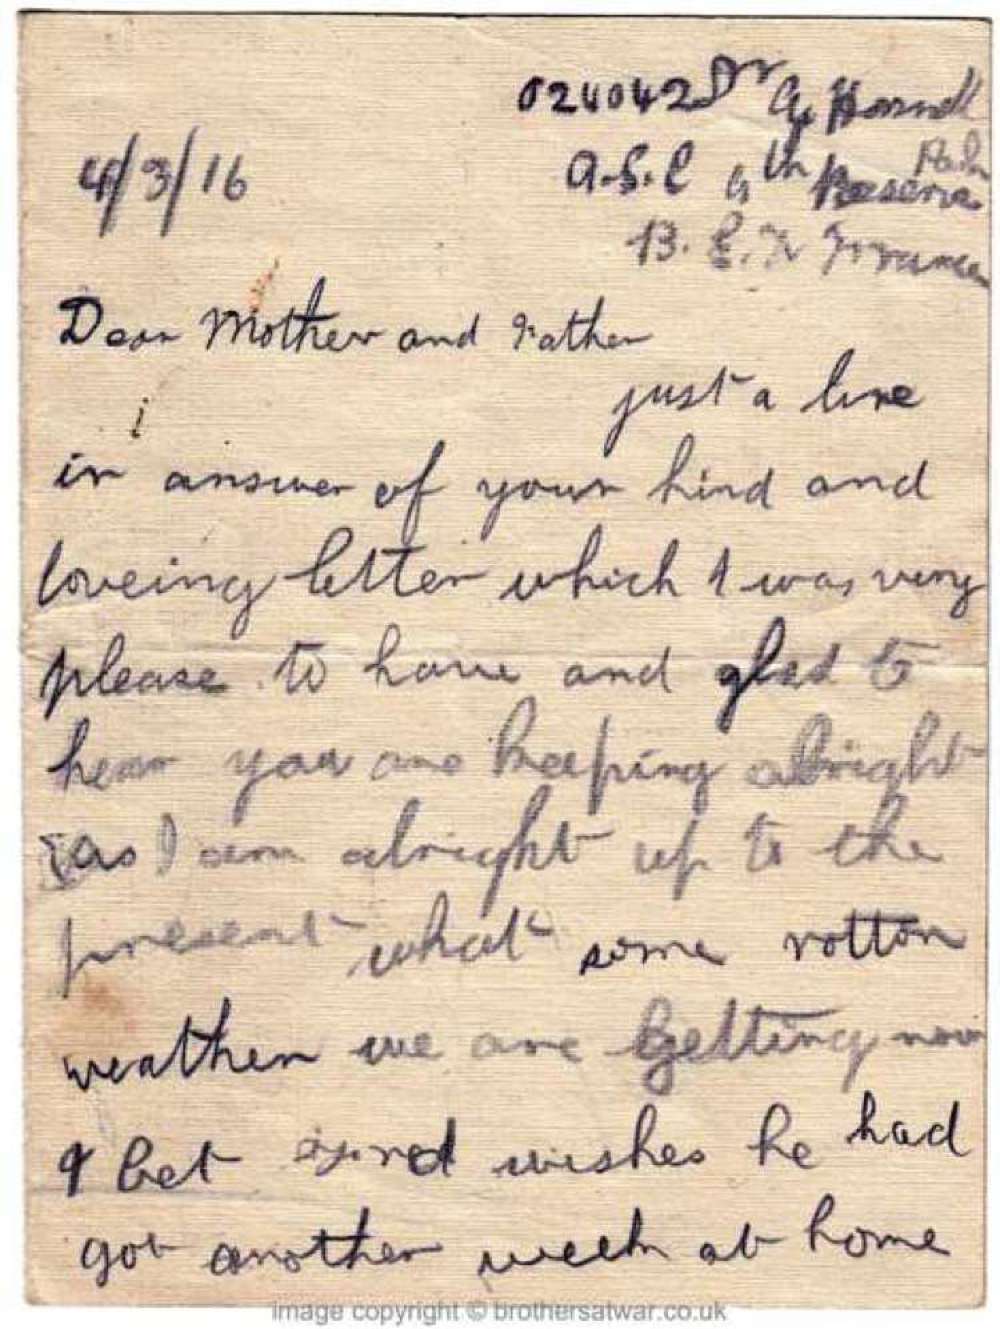 024042 Dr G Hornell
4/3/16
A.S.C 4th Reserve Park
B.E.F France
Dear Mother and Father
just a line
in answer of your kind and
loveing letter which I was very
please to have and glad to
hear you are keeping alright
as I am alright up to the
present what some rotton
weather we are getting now
I bet wishes he had
got another week at home
image copyright © brothersatwar.co.uk